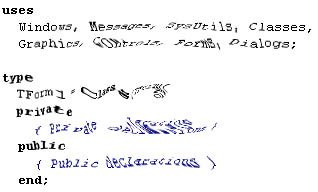 uses
Windows, Messages, SysUtils, Classes,
Graphics, Controls, Forms, Dialogs;
type
TForm1 = Class
private
{ Private declarations }
public
{ Public declarations }
end;